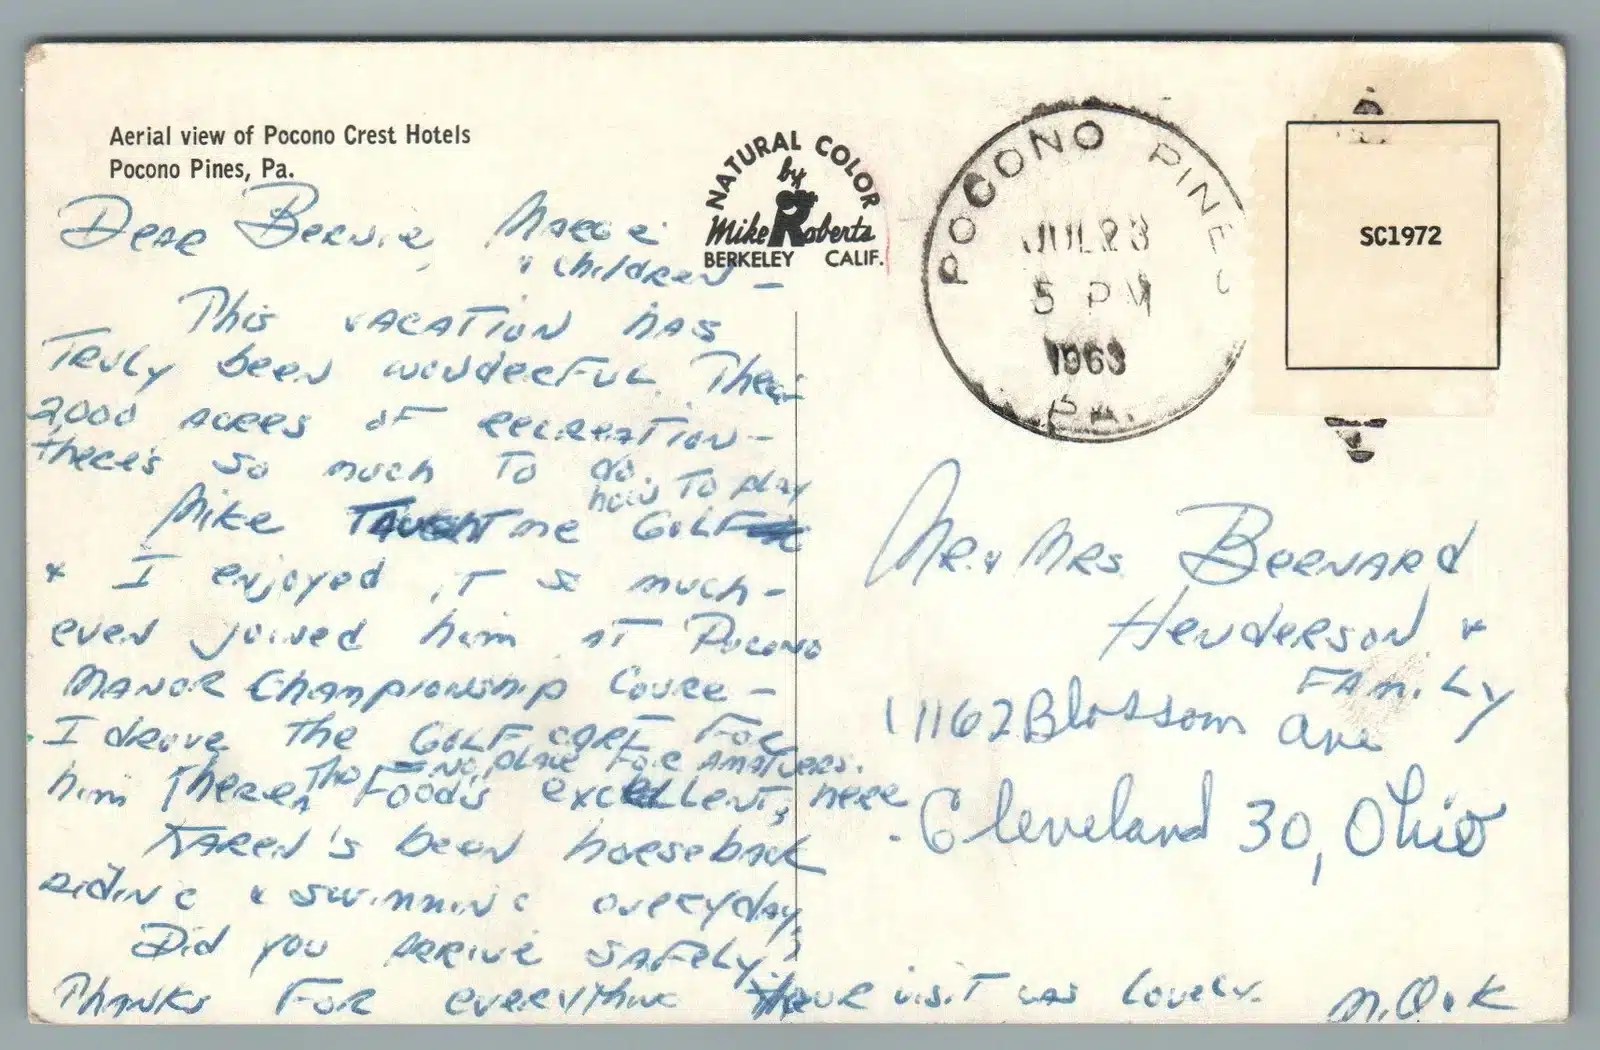 Aerial view of Pocono Crest Hotels
Pocono Pines, Pa.
NATURAL COLOR
by
Mike Roberts
BERKELEY CALIF.
POCONO PINES
JUL 23
5 PM
1963
PA.
SC1972
Dear Bernie, Margie
& children -
This vacation has
Truly been wonderful.
2,000 acres of recreation -
there's so much to do.
how to play
Mike taught me Golf
& I enjoyed it so much -
even joined him at Pocono
Manor Championship Course -
I drove the Golf cart for
him there, tho - no place for amatuers.
Food's excellent, here
Karen's been horseback
riding & swimming everyday,
Did you arrive safely?
Thanks for everything your visit was lovely.
M, &
Mr. & Mrs. Bernard
Henderson &
Family
11162 Blossom Ave
Cleveland 30, Ohio